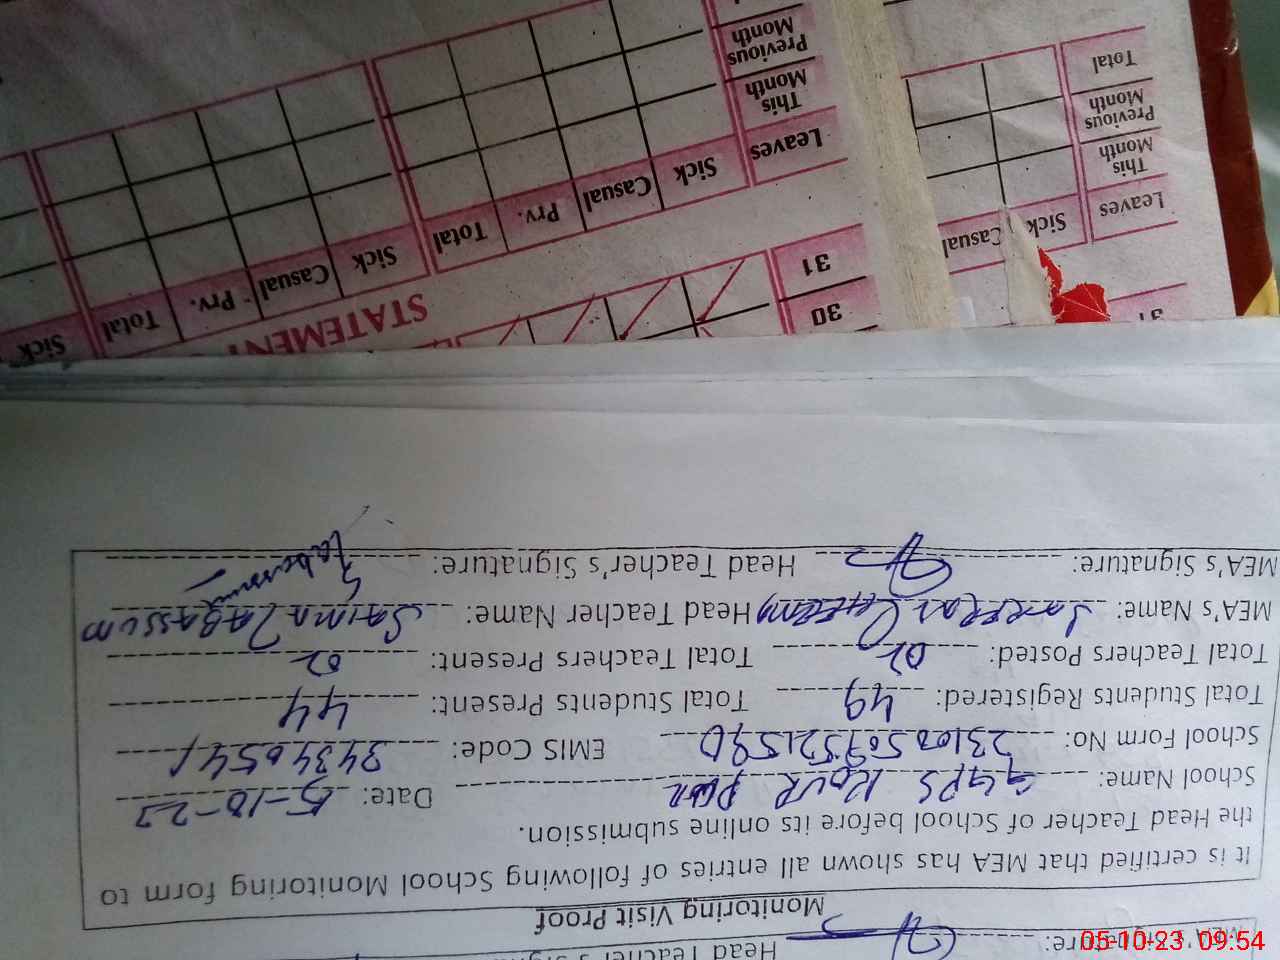 Monitoring Visit Proof
It is certified that MEA has shown all entries of following School Monitoring form to
the Head Teacher of School before its online submission.
School Name: GGPS KOUR PUR Date: 5-10-23
School Form No: EMIS Code: 34340541
Total Students Registered: 49 Total Students Present: 44
Total Teachers Posted: 02 Total Teachers Present: 02
MEA's Name: Head Teacher Name: SAIMA TABASSUM
MEA's Signature: Head Teacher's Signature:
MEA's Signature: Head Teacher's
30
31
STATEMENT
Sick Casual Prv. Total Sick Casual Prv. Total Sick
Leaves
This Month
Previous Month
31
Leaves Sick Casual
This Month
Previous Month
Total
05-10-23 09:54